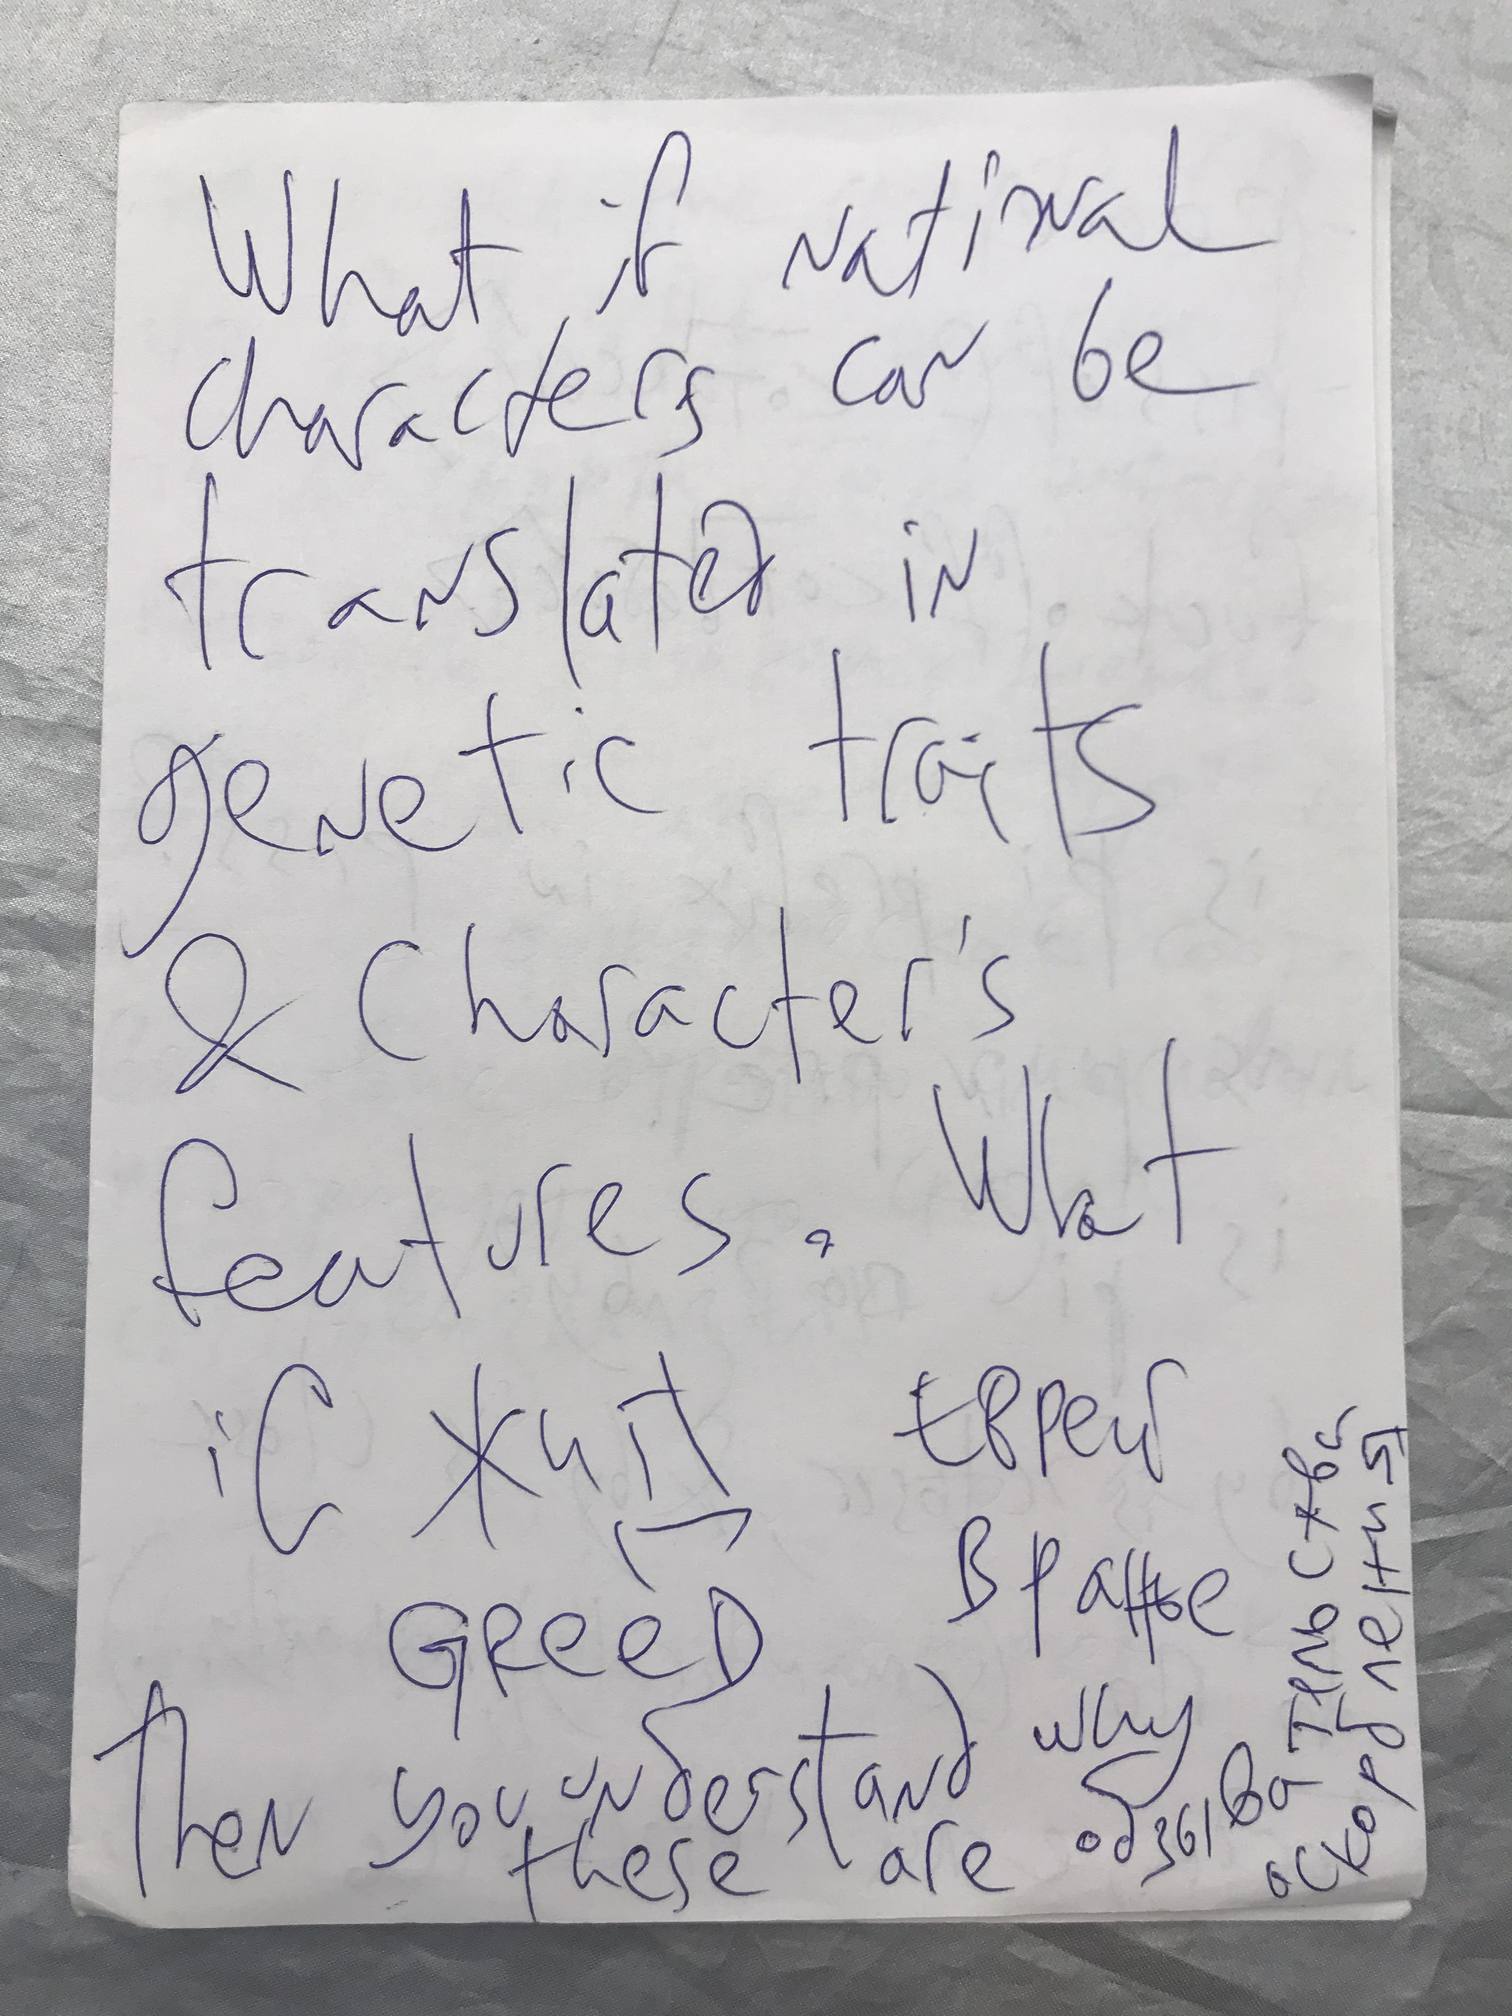 What if national
characters can be
translated in
genetic traits
& Character's
features. What
if жид еврей
GREED вранье
Then you understand why
these are
обзыва тельства
оскорбления